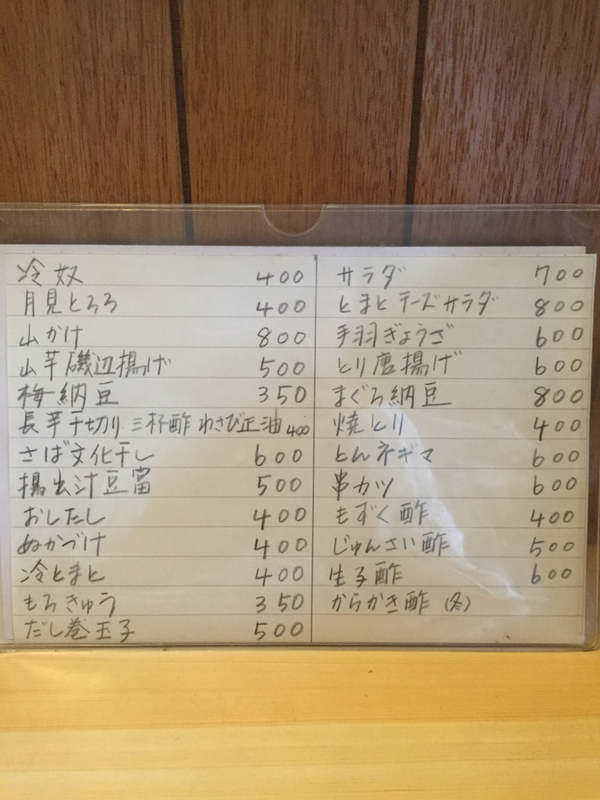 冷奴 400
月見とろろ 400
山かけ 800
山芋磯辺揚げ 500
梅納豆 350
長芋千切り 三杯酢 わさび正油 400
さば文化干し 600
揚出汁豆富 500
おしたし 400
ぬかづけ 400
冷とまと 400
もろきゅう 350
だし巻玉子 500
サラダ 700
とまとチーズサラダ 800
手羽ぎょうざ 600
とり唐揚げ 600
まぐろ納豆 800
焼とり 400
とんネギマ 600
串カツ 600
もずく酢 400
じゅんさい酢 500
生子酢 600
からかき酢 (冬)